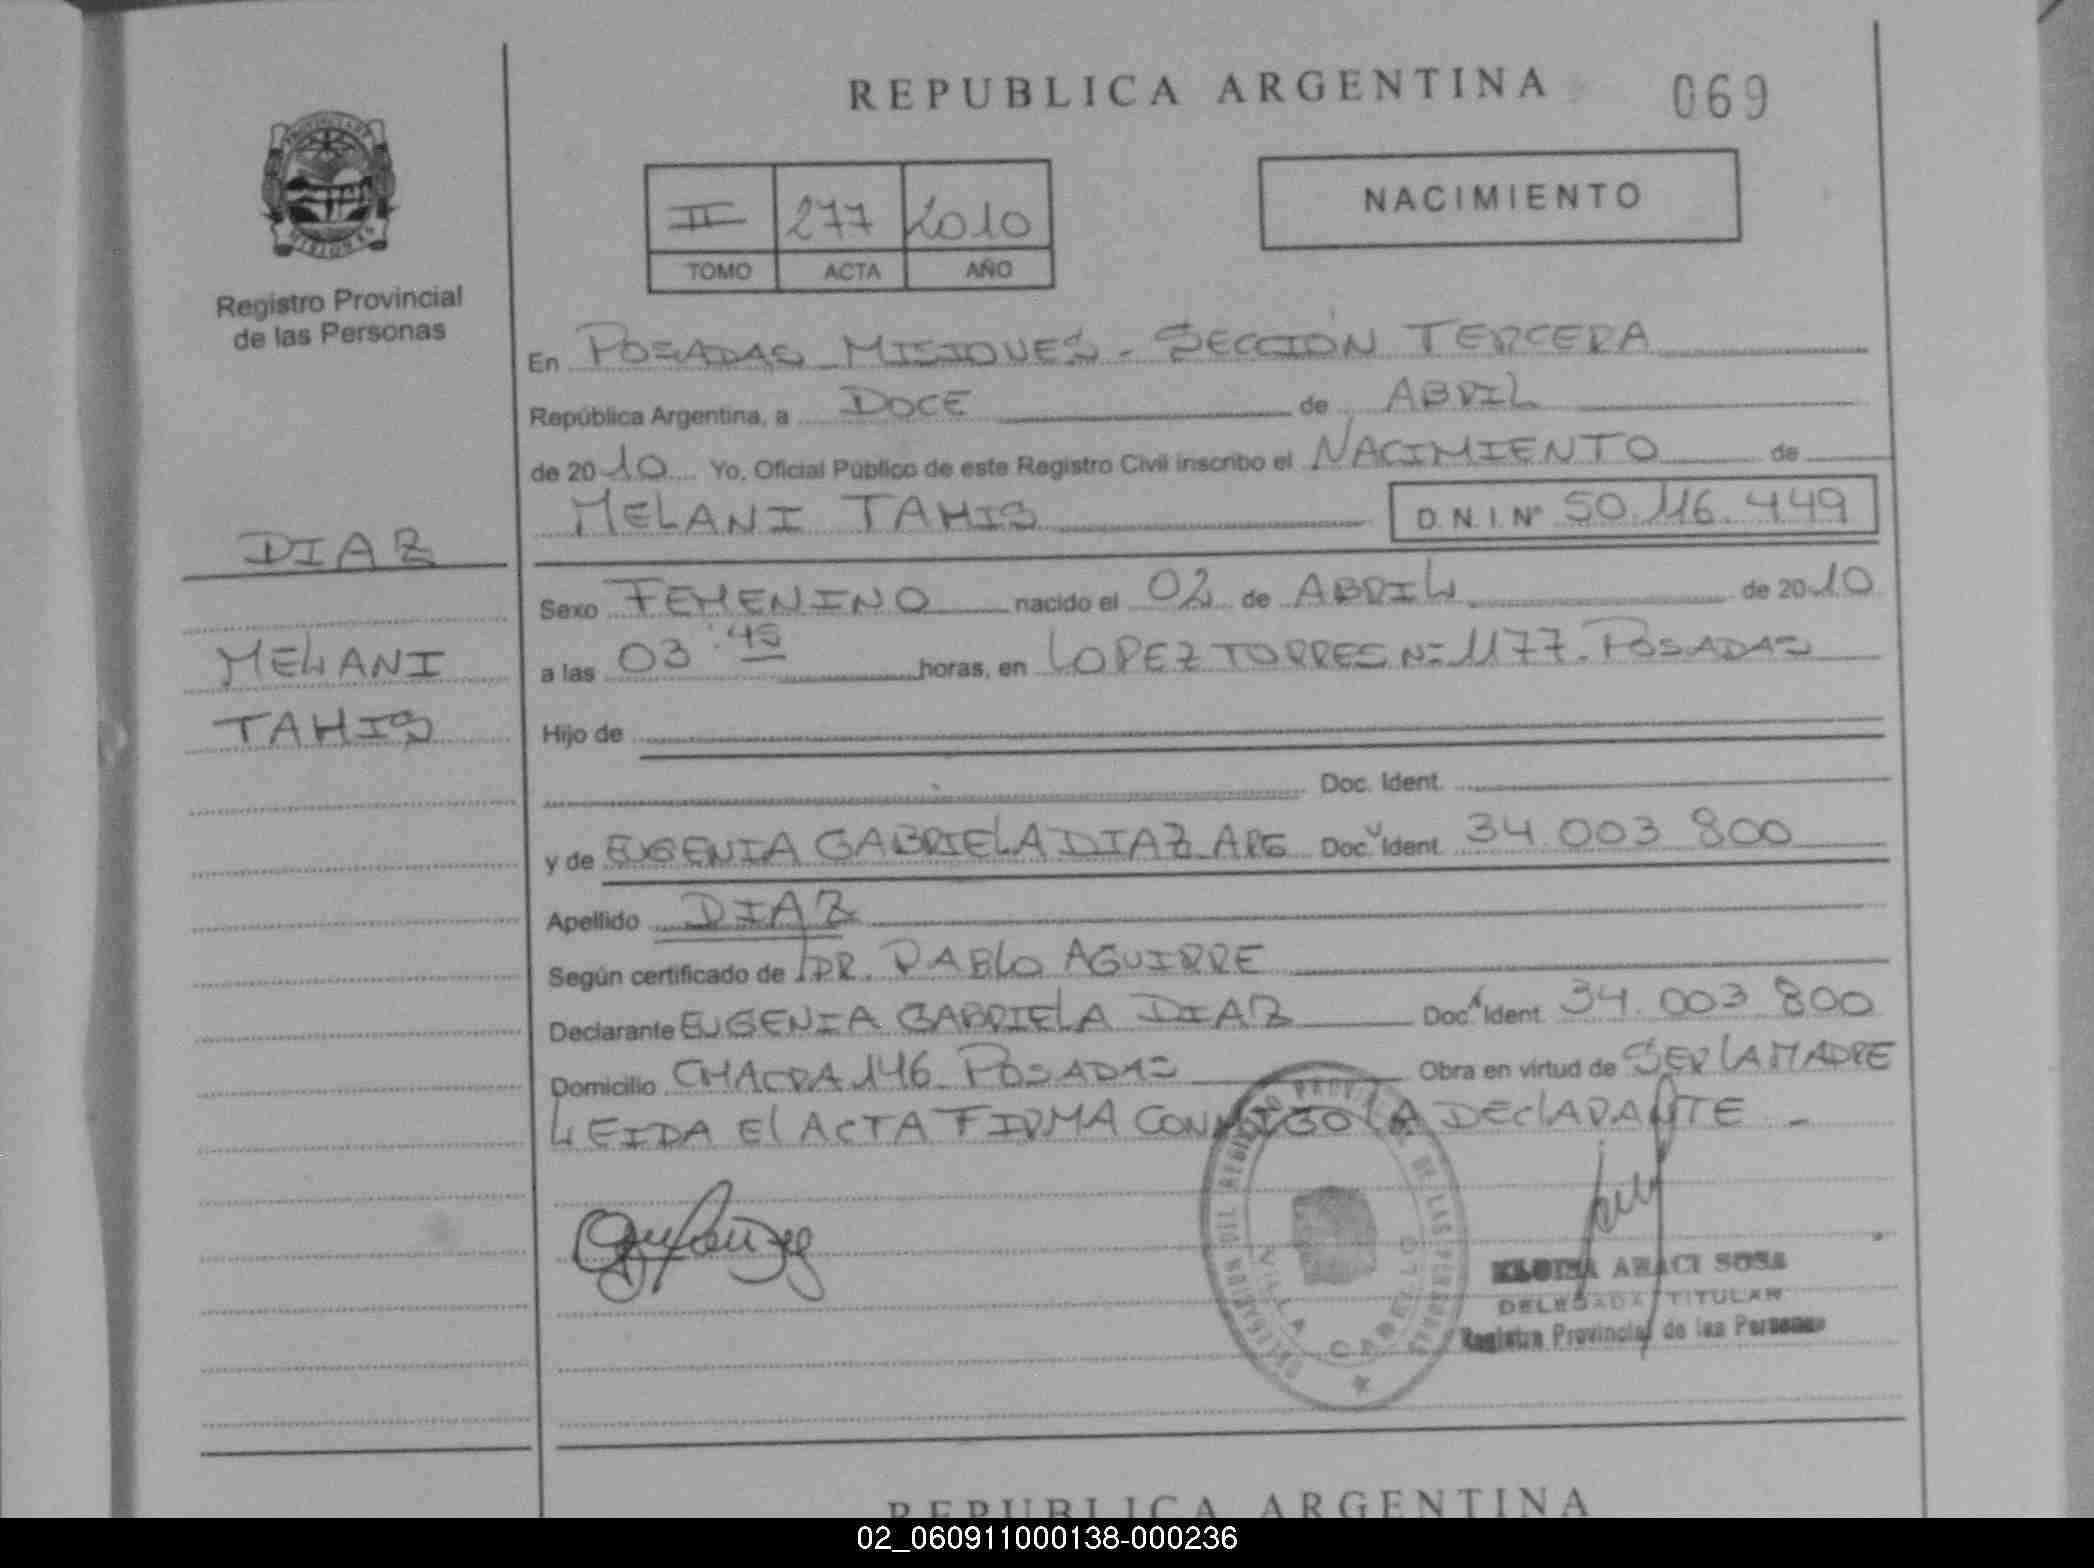 REPUBLICA ARGENTINA 069
II 277 2010
TOMO ACTA AÑO
NACIMIENTO
Registro Provincial
de las Personas
DIAZ
MELANI
TAHIS
En POSADAS MISIONES - SECCIÓN TERCERA
República Argentina, a DOCE de ABRIL
de 2010 Yo, Oficial Público de este Registro Civil inscribo el NACIMIENTO de
MELANI TAHIS D.N.I. Nº 50.116.449
Sexo FEMENINO nacido el 02 de ABRIL de 2010
a las 03:45 horas, en LOPEZ TORRES Nº 1177. POSADAS
Hijo de
Doc. Ident.
y de EUGENIA GABRIELA DIAZ ARG Doc. Ident. 34.003 800
Apellido DIAZ
Según certificado de DR. PABLO AGUIRRE
Declarante EUGENIA GABRIELA DIAZ Doc. Ident. 34.003 800
Domicilio CHACRA 146 POSADAS Obra en virtud de SER LA MADRE
LEIDA El ACTA FIRMA CONMIGO LA DEClARANTE -
VILLA CABELLO
ARACI SOSA
DELEGADA TITULAR
Registro Provincial de las Personas
REPUBLICA ARGENTINA
02_060911000138-000236